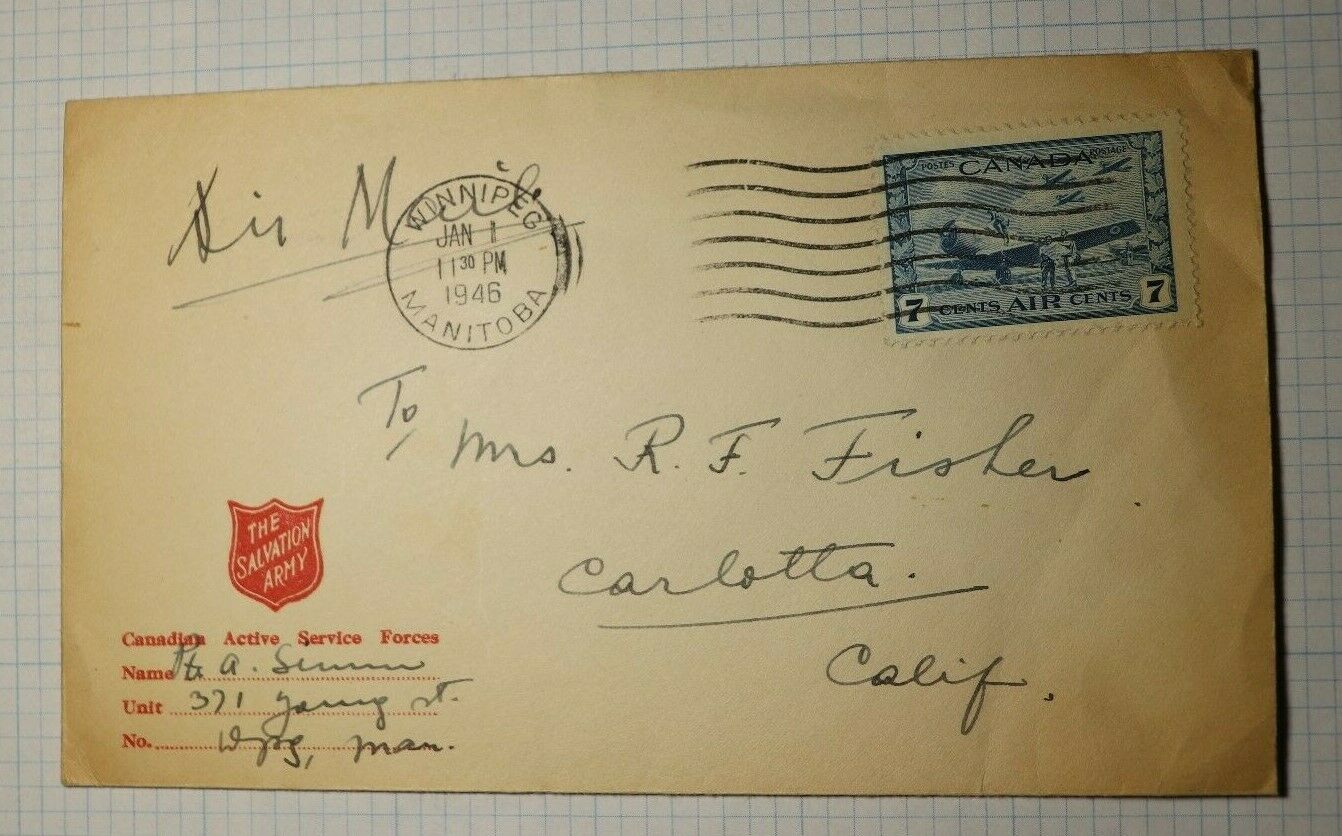 Air Mail
WINNIPEG
JAN 1
11 30 PM
1946
MANITOBA
POSTES CANADA POSTAGE
7 CENTS AIR CENTS 7
To
Mrs. R. F. Fisher
Carlotta.
Calif.
THE
SALVATION
ARMY
Canadian Active Service Forces
Name Pte A.
Unit 371 Young st.
No. Wpg, Man.